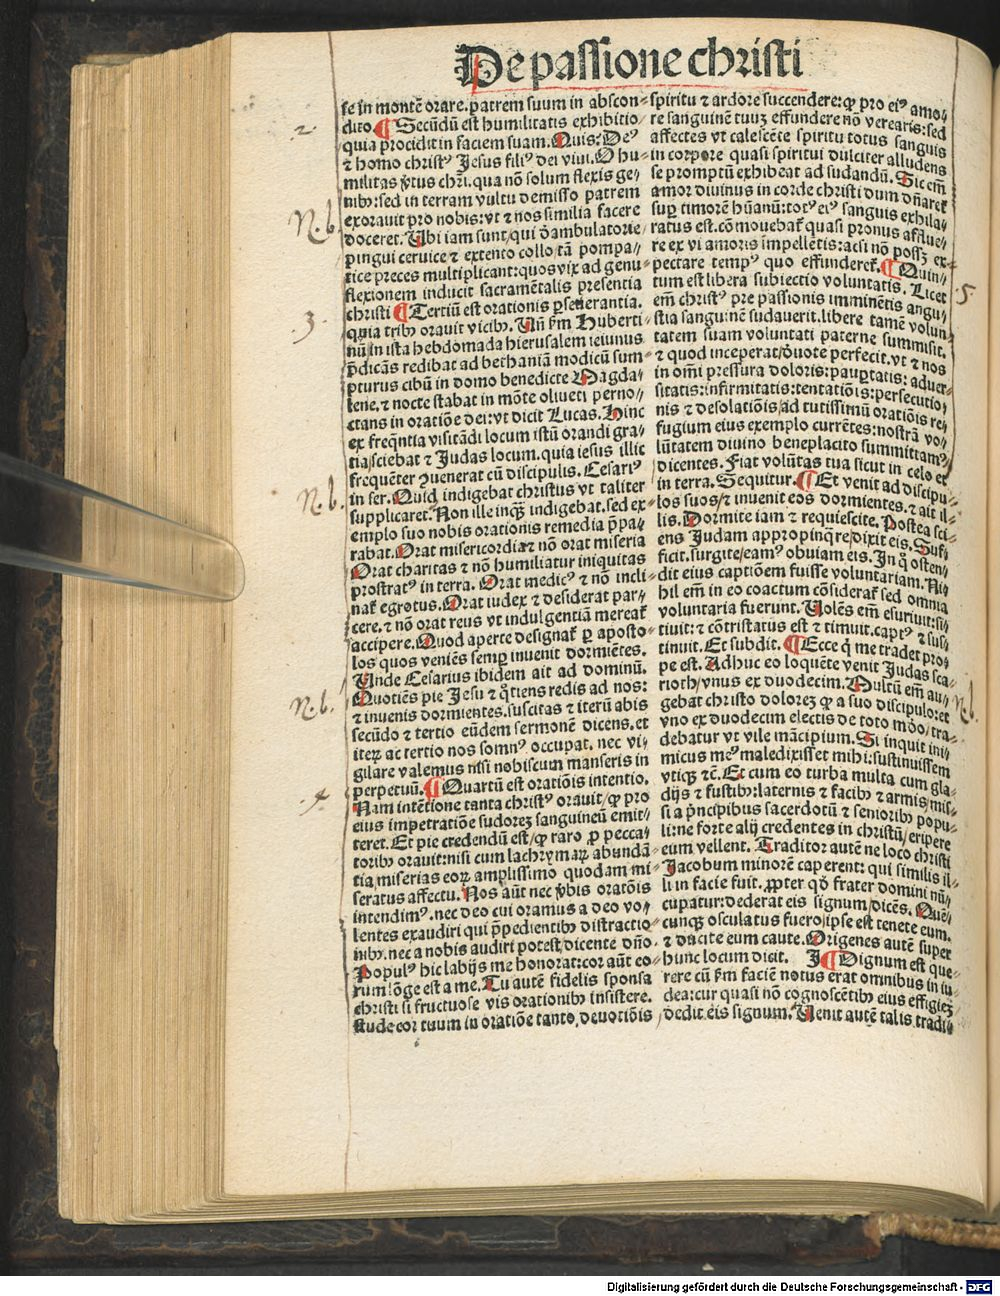 De passione christi
se in montē orare. patrem suum in abscon-
dito. ¶ Secūdū est humilitatis exhibitio/
quia procidit in faciem suam. Quis. Deꝰ
⁊ homo christꝰ Jesus filiꝰ dei viui. O hu-
militas ꝟtus chr̄i. qua nō solum flexis ge-
nibꝰ: sed in terram vultu demisso patrem
exorauit pro nobis: vt ⁊ nos similia facere
doceret. Ubi iam sunt/ qui d̄ambulatorie/
pingui ceruice ⁊ extento collo/ tā pompa/
tice preces multiplicant: quos vix ad genu-
flexionem inducit sacramētalis presentia
christi ¶ Tertiū est orationis ꝑseuerantia.
quia tribꝰ orauit vicibꝰ. Un̄ ẜm Huberti-
nū/ in ista hebdomada hierusalem ieiunus
p̄dicās redibat ad bethaniā modicū sum-
pturus cibū in domo benedicte Magda-
lene. ⁊ nocte stabat in mōte oliueti perno/
ctans in oratiōe dei: vt dicit Lucas. Hinc
ex freq̄ntia visitādi locum istū orandi gra-
tia/ sciebat ⁊ Judas locum. quia iesus illic
frequēter ꝯuenerat cū discipulis. Cesariꝰ
in ser. Quid indigebat christus vt taliter
supplicaret. Non ille inqͣꝫ indigebat. sed ex-
emplo suo nobis orationis remedia p̄pa-
rabat. Orat misericordia ⁊ nō orat miseria
Orat charitas ⁊ nō humiliatur iniquitas
prostratꝰ in terra. Orat medicꝰ ⁊ nō incli-
nat᷑ egrotus. Orat iudex ⁊ desiderat par-
cere. ⁊ nō orat reus vt indulgentiā mereat᷑
accipere. Quod aperte designat᷑ ꝑ aposto-
los quos veniēs semꝑ inuenit dormiētes.
Unde Cesarius ibidem ait ad dominū.
Quotiēs pie Jesu ⁊ q̄tiens redis ad nos:
⁊ inuenis dormientes. suscitas ⁊ iterū abis
secūdo ⁊ tertio eūdem sermonē dicens. et
iteꝝ ac tertio nos somnꝰ occupat. nec vi-
gilare valemus nisi nobiscum manseris in
perpetuū. ¶ Quartū est oratiōis intentio.
Nam intētione tanta christꝰ orauit/ ꝙ pro
eius impetratiōe sudorez sanguineū emit-
teret. Et pie credendū est/ ꝙ raro ꝓ pecca-
toribꝰ orauit: nisi cum lachrymaꝝ abundā-
tia/ miserias eoꝝ amplissimo quodam mi-
seratus affectu. Nos aūt nec ꝟbis oratōis
intendimꝰ. nec deo cui oramus a deo vo/
lentes exaudiri qui p̄pedientibꝰ distractio-
nibꝰ. nec a nobis audiri potest/ dicente dn̄o.
Populꝰ hic labijs me honorat: cor aūt eo-
rum lōge est a me. Tu autē fidelis sponsa
christi si fructuose vis orationibꝰ insistere.
stude cor tuum in oratiōe tanto. deuotiōis
spiritu ⁊ ardore succendere: ꝙ pro eiꝰ amo-
re sanguinē tuuꝫ effundere nō verearis: sed
affectes vt calescēte spiritu totus sanguis
in corpore quasi spiritui dulciter alludens
se promptū exhibeat ad sudandū. Sic em̄
amor diuinus in corde christi dum dn̄aret᷑
suꝑ timorē hūanū: totꝰ eiꝰ sanguis exhila-
ratus est. cōmouebat᷑ quasi pronus afflue-
re ex vi amoris impellētis: acsi nō possꝫ ex-
pectare tempꝰ quo effunderet᷑. ¶ Quin-
tum est libera subiectio voluntatis. Licet
em̄ christꝰ pre passionis imminētis angu-
stia sanguinē sudauerit. libere tamē volun
tatem suam voluntati paterne summisit.
⁊ quod inceperat/ d̄uote perfecit. vt ⁊ nos
in om̄i pressura doloris: pauꝑtatis: aduer-
sitatis: infirmitatis: tentatiōis: persecutio-
nis ⁊ desolatiōis/ ad tutissimū orationis re-
fugium eius exemplo currētes: nostrā vo-
lūtatem diuino beneplacito summittamꝰ
dicentes. Fiat volūtas tua sicut in celo et
in terra. Sequitur. ¶ Et venit ad discipu-
los suos/ ⁊ inuenit eos dormientes. ⁊ ait il-
lis. Dormite iam ⁊ requiescite. Postea sci-
ens Judam appropinq̄re/ dixit eis. Suffi
ficit. surgite/ eamꝰ obuiam eis. In qͦ osten-
dit eius captiōem fuisse voluntariam. Ni-
hil em̄ in eo coactum cōsiderat᷑ sed omnia
voluntaria fuerunt. Uolēs em̄ esuriuit: si-
tiuit: ⁊ cōtristatus est ⁊ timuit. captꝰ ⁊ sus-
tinuit. Et subdit. ¶ Ecce qͥ me tradet pro-
pe est. Adhuc eo loquēte venit Judas sca-
rioth/ vnus ex duodecim. Multū em̄ au-
gebat christo dolorez ꝙ a suo discipulo: et
vno ex duodecim electis de toto mōo/ tra-
debatur vt vile mācipium. Si inquit ini-
micus meꝰ maledixisset mihi: sustinuissem
vtiqꝫ ⁊c̄. Et cum eo turba multa cum gla-
dijs ⁊ fustibꝰ: laternis ⁊ facibꝰ ⁊ armis/ mis-
si a p̄ncipibus sacerdotū ⁊ senioribꝰ popu-
li: ne forte alij credentes in christū/ eripere
eum vellent. Traditor autē ne loco christi
Jacobum minorē caperent: qui similis il-
li in facie fuit. ꝓpter qd̓ frater domini nū-
cupatur: dederat eis signum/ dicēs. Quē-
cunqꝫ osculatus fuero/ ipse est tenete eum.
⁊ ducite eum caute. Origenes autē super
hunc locum dicit. ¶ Dignum est que-
rere cū ẜm faciē notus erat omnibus in iu-
dea: cur quasi nō cognoscētibꝰ eius effigieꝫ
dedit eis signum. Uenit autē talis tradi-
2
N.b.
.3.
N.b.
N.b.
.4
.5.
N.b.
Digitalisierung gefördert durch die Deutsche Forschungsgemeinschaft - DFG